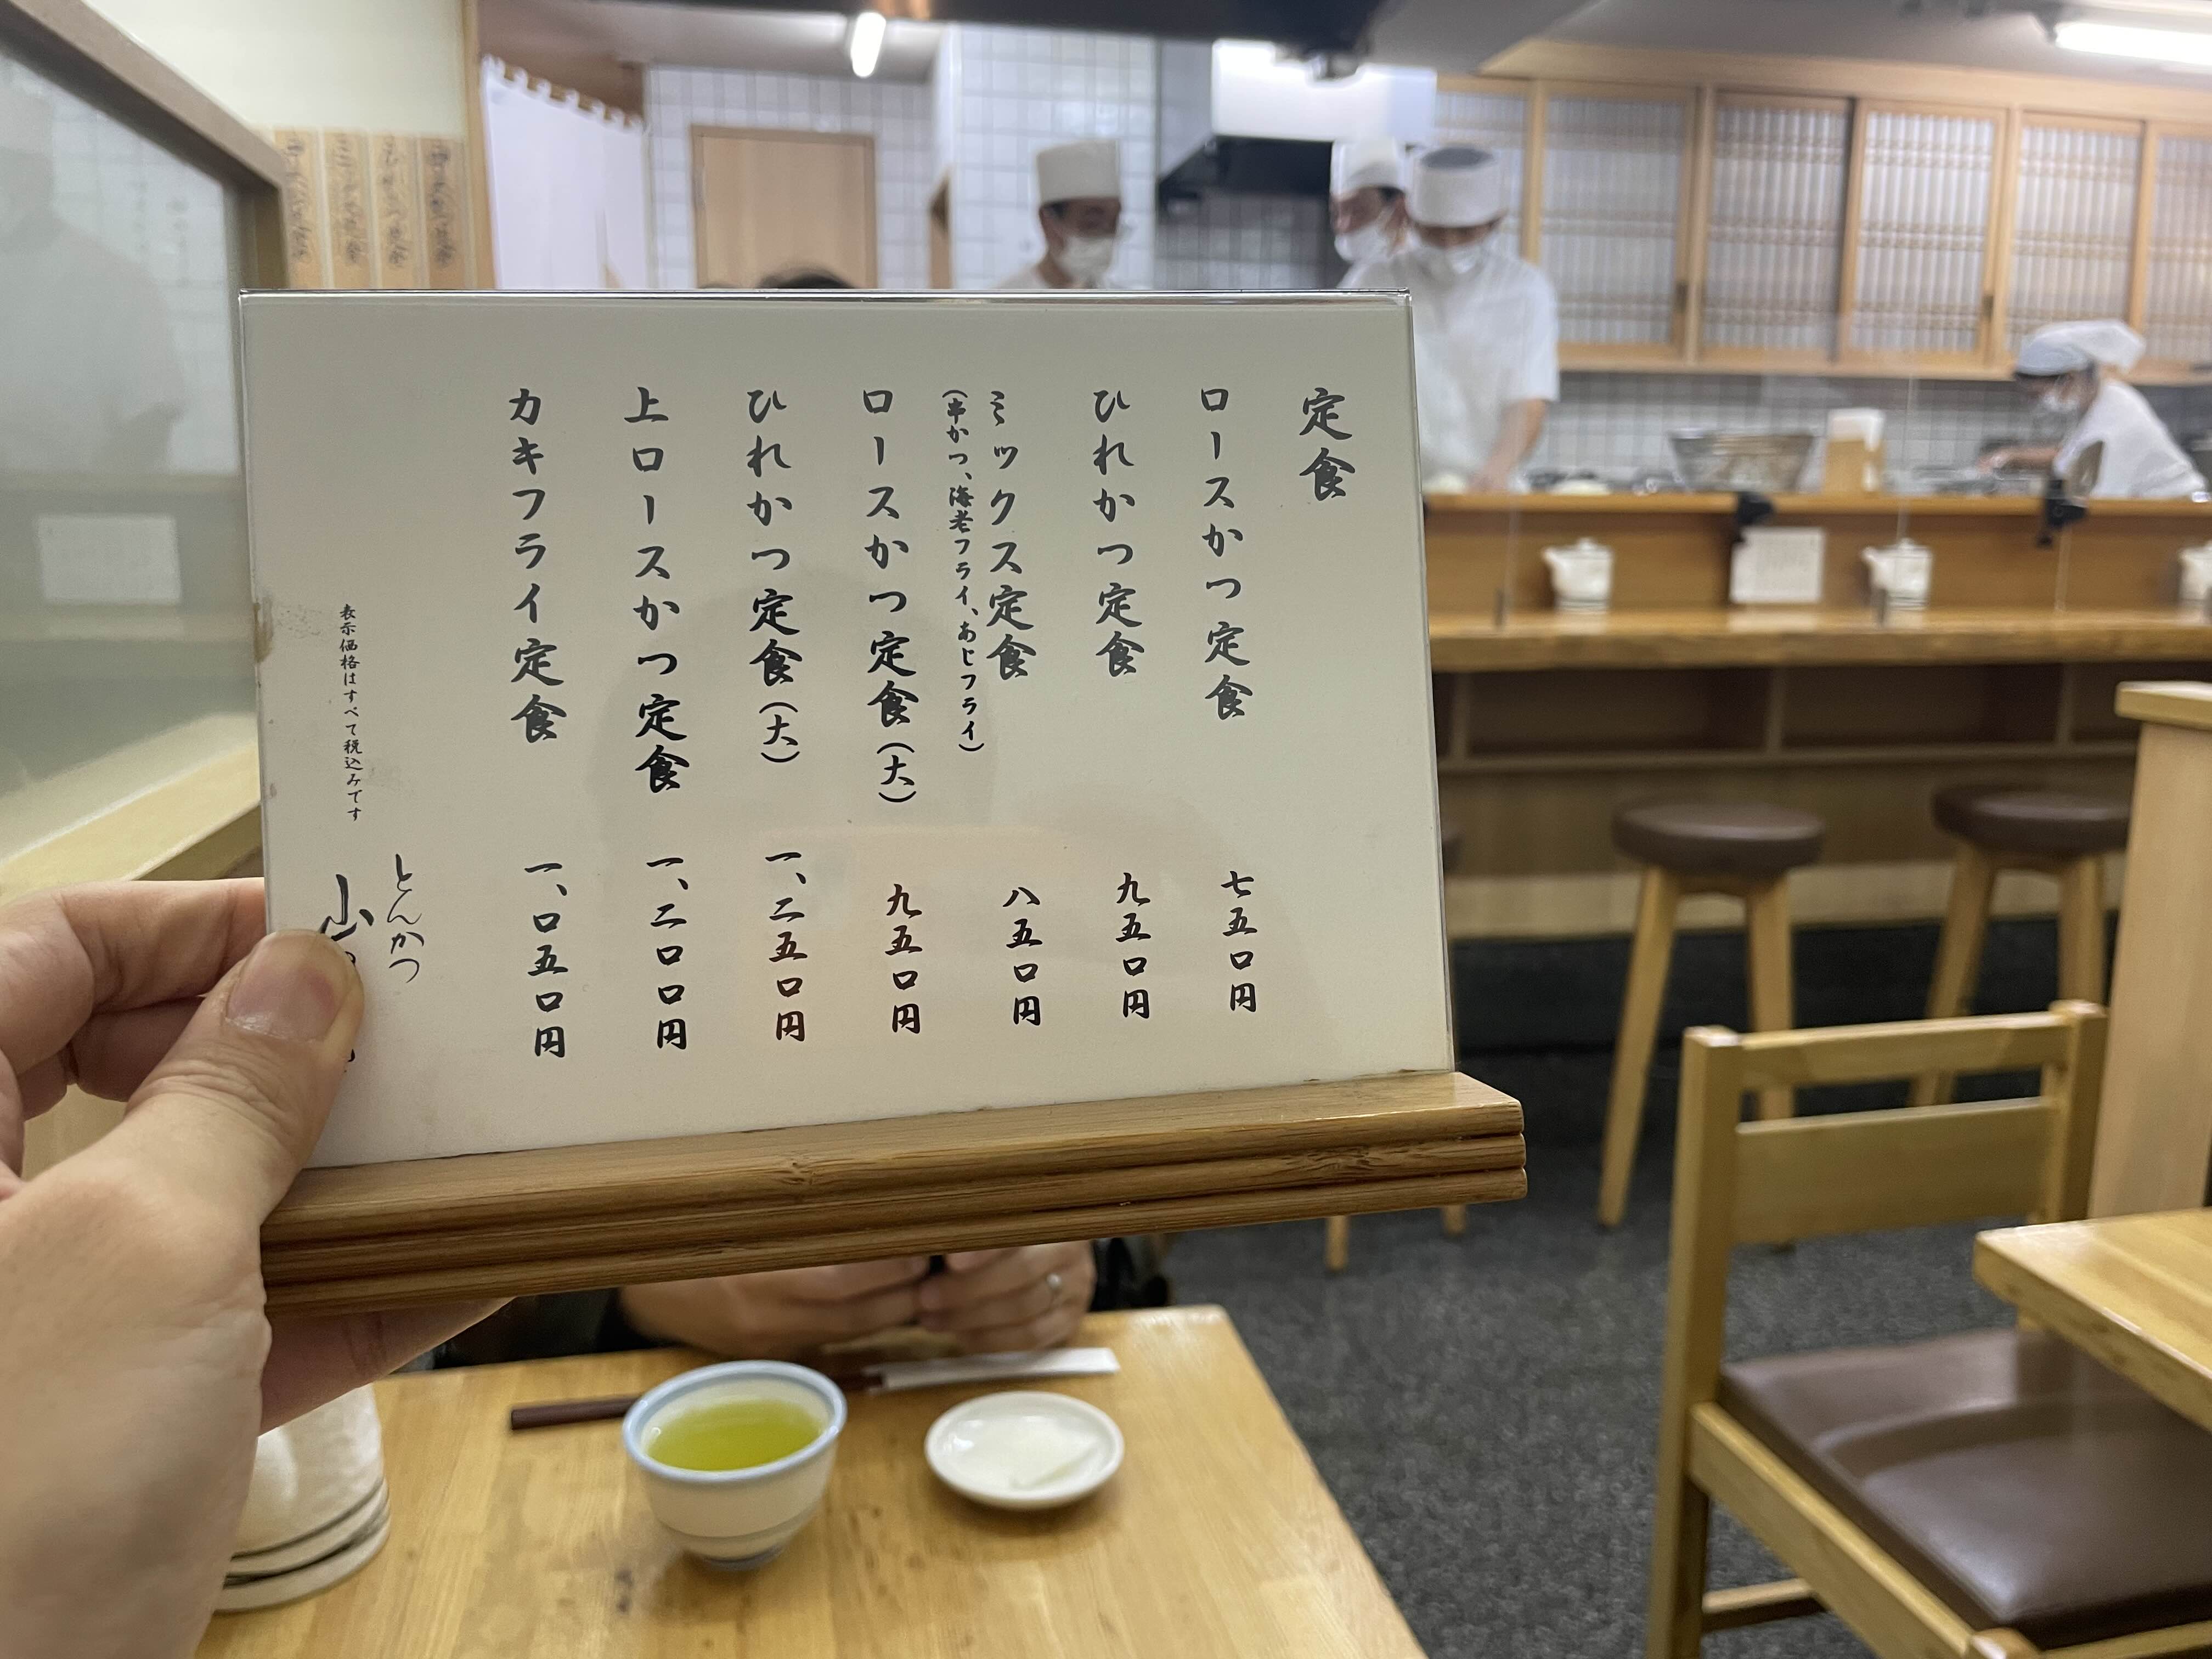 定食
ロースかつ定食 七五〇円
ひれかつ定食 九五〇円
ミックス定食 八五〇円
(串かつ、海老フライ、あじフライ)
ロースかつ定食(大) 九五〇円
ひれかつ定食(大) 一、二五〇円
上ロースかつ定食 一、二〇〇円
カキフライ定食 一、〇五〇円
とんかつ
山
表示価格はすべて税込みです